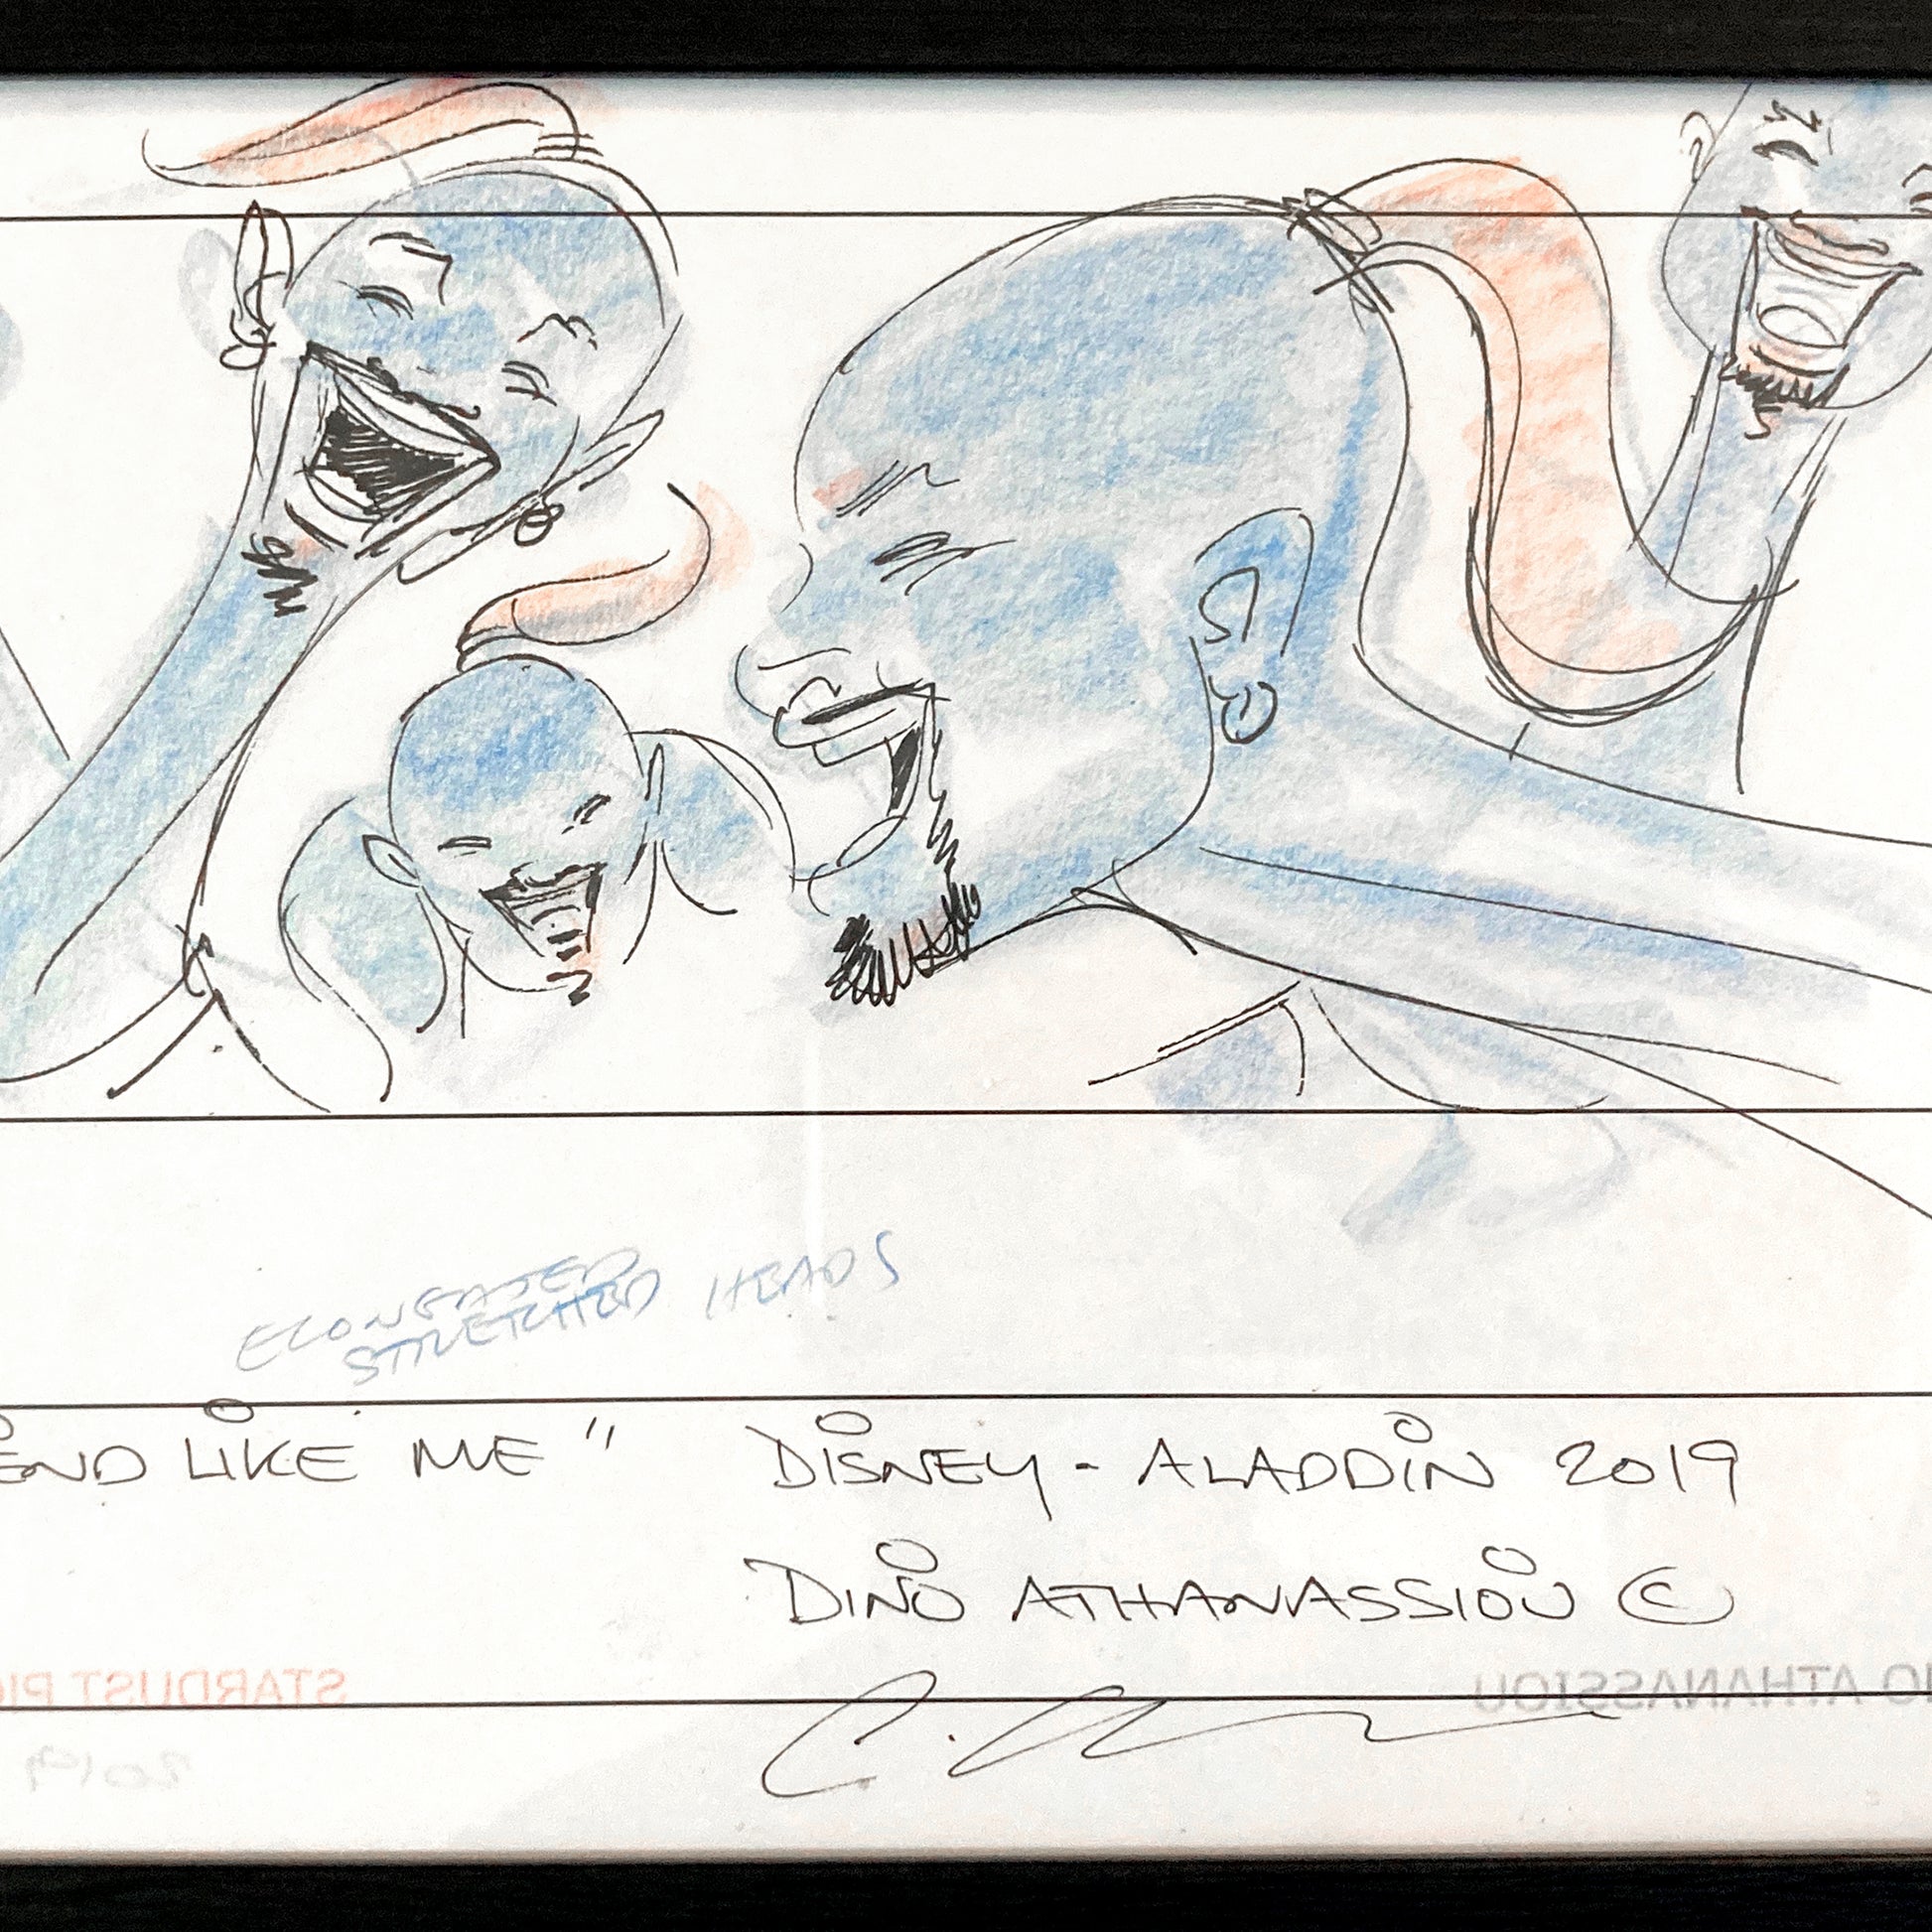 ELONGATED
STRETCHED HEADS
END LIKE ME " DISNEY - ALADDIN 2019
DINO ATHANASSIOU ©
STARDUST PIC
O ATHANASSIOU
2019